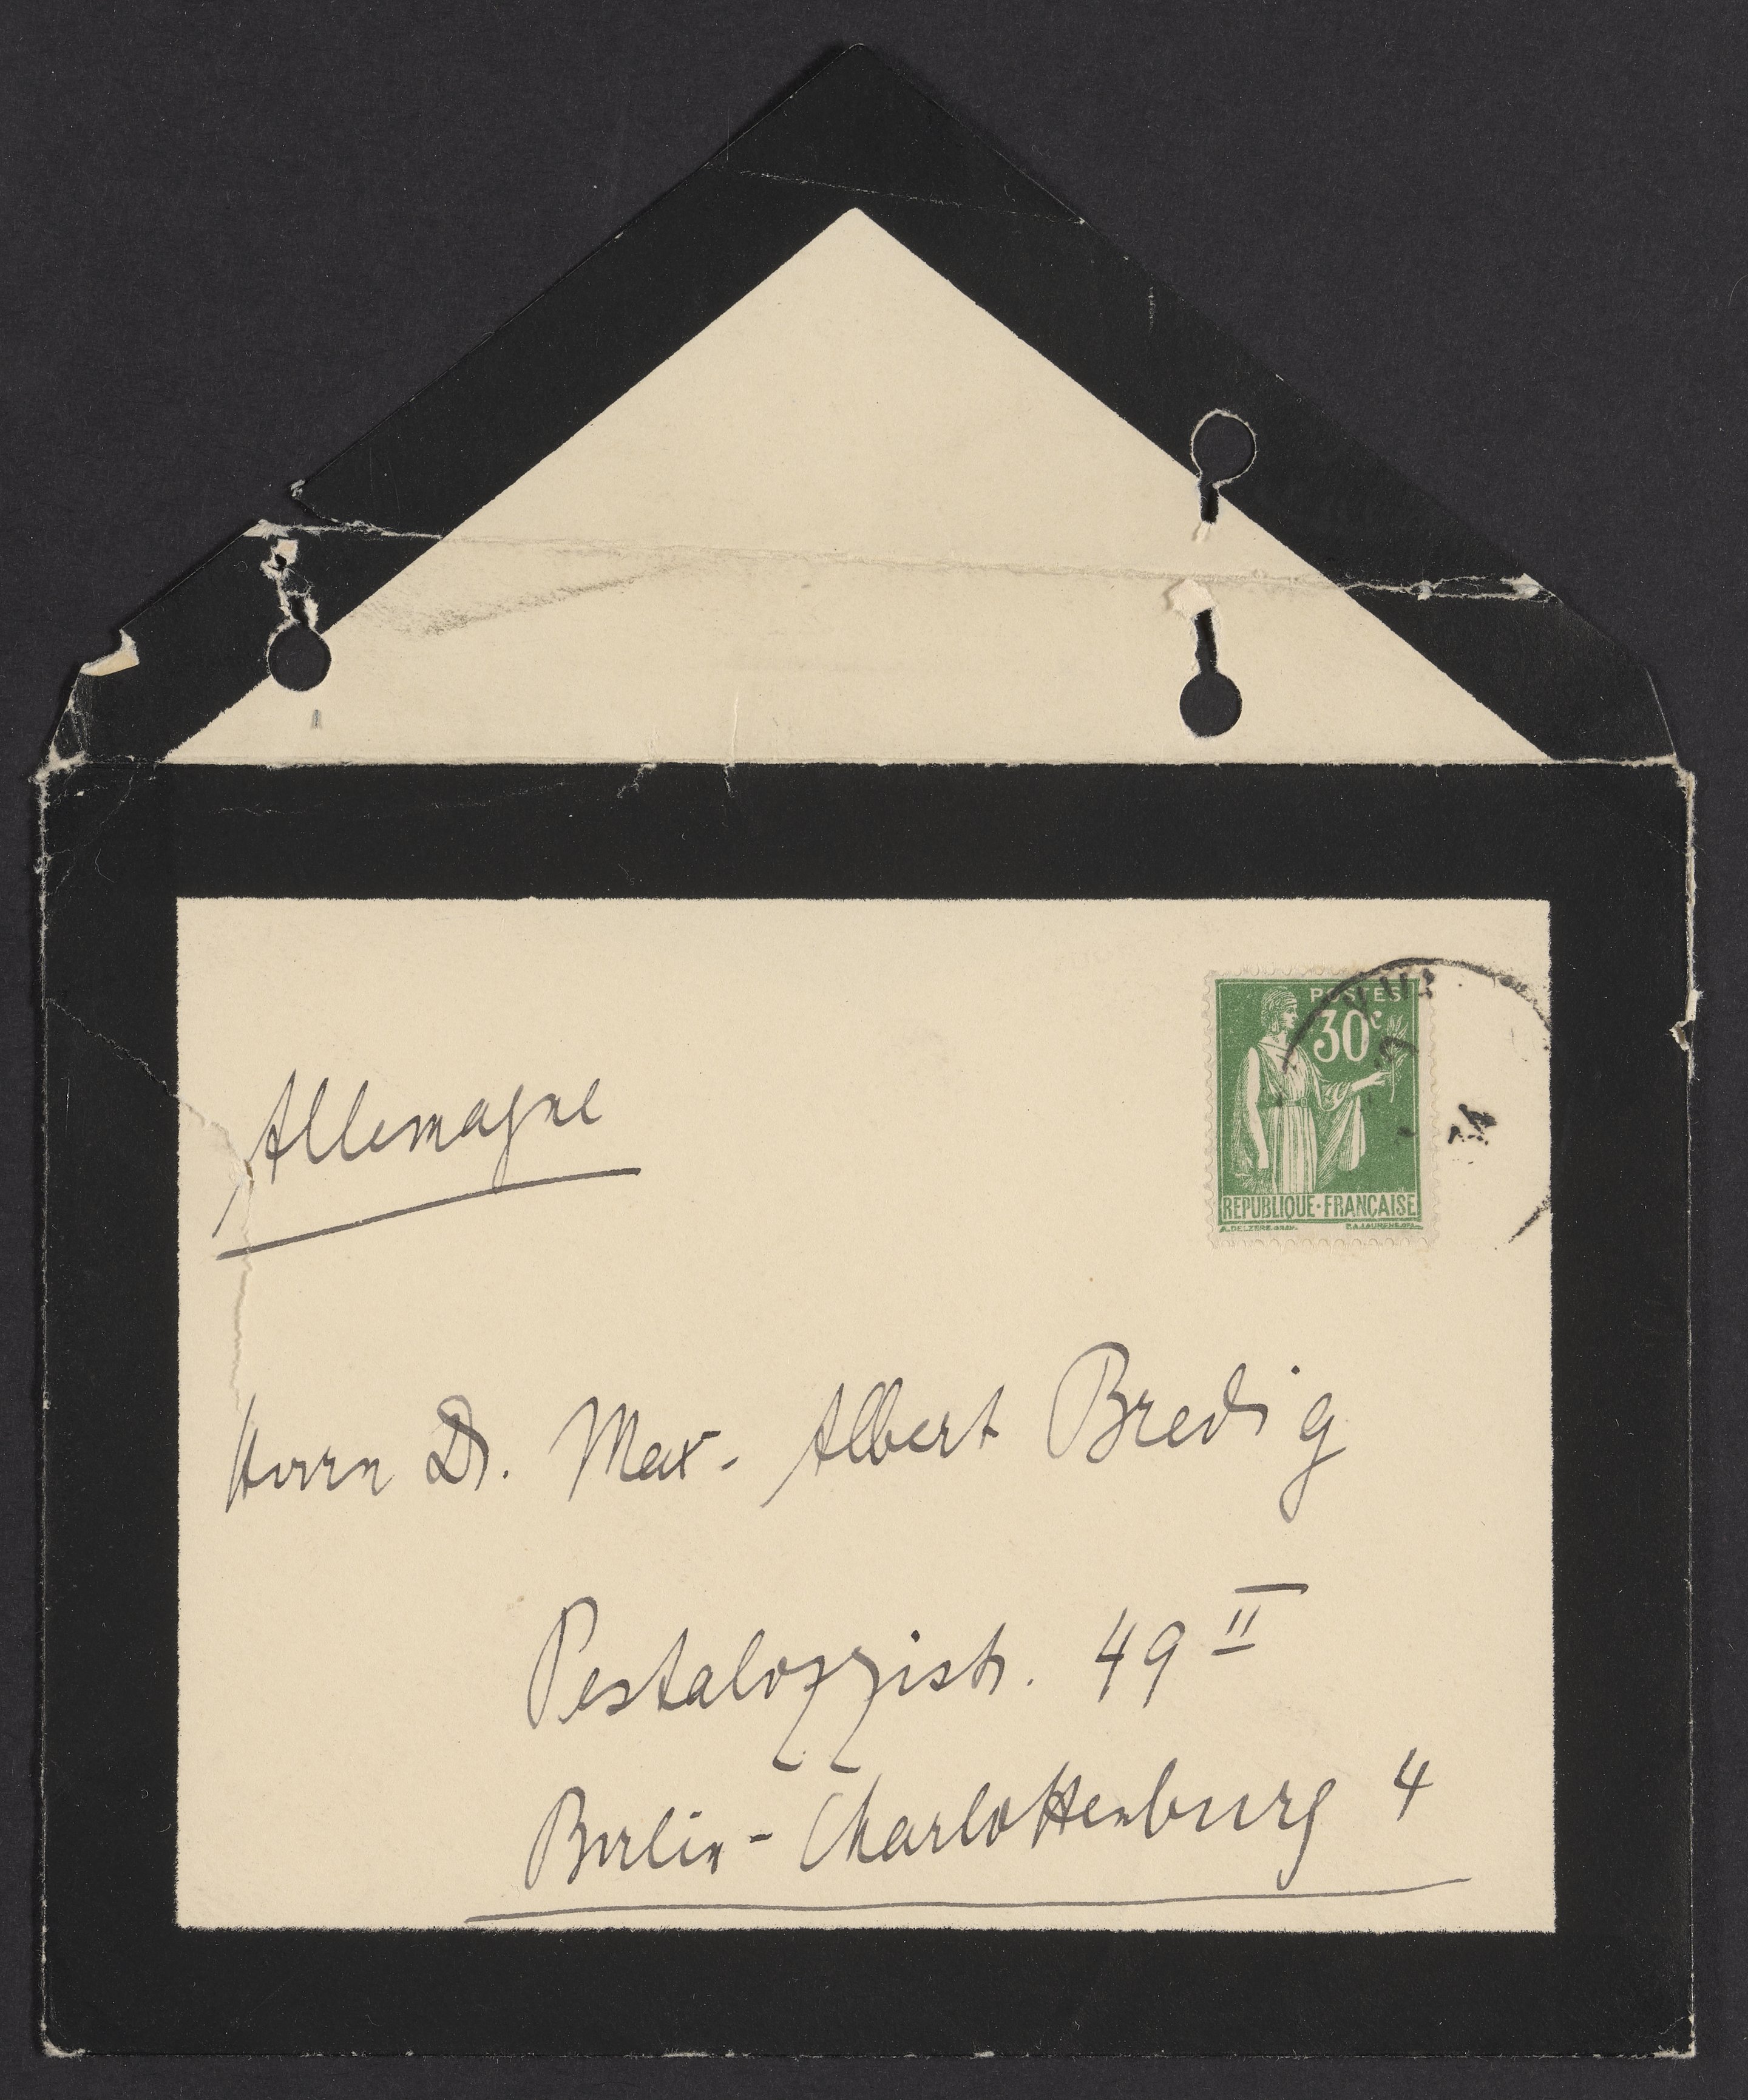 POSTES
30c
REPUBLIQUE·FRANÇAISE
Allemagne
Herrn Dr. Max-Albert Bredig
Pestalozzistr. 49 II
Berlin-Charlottenburg 4